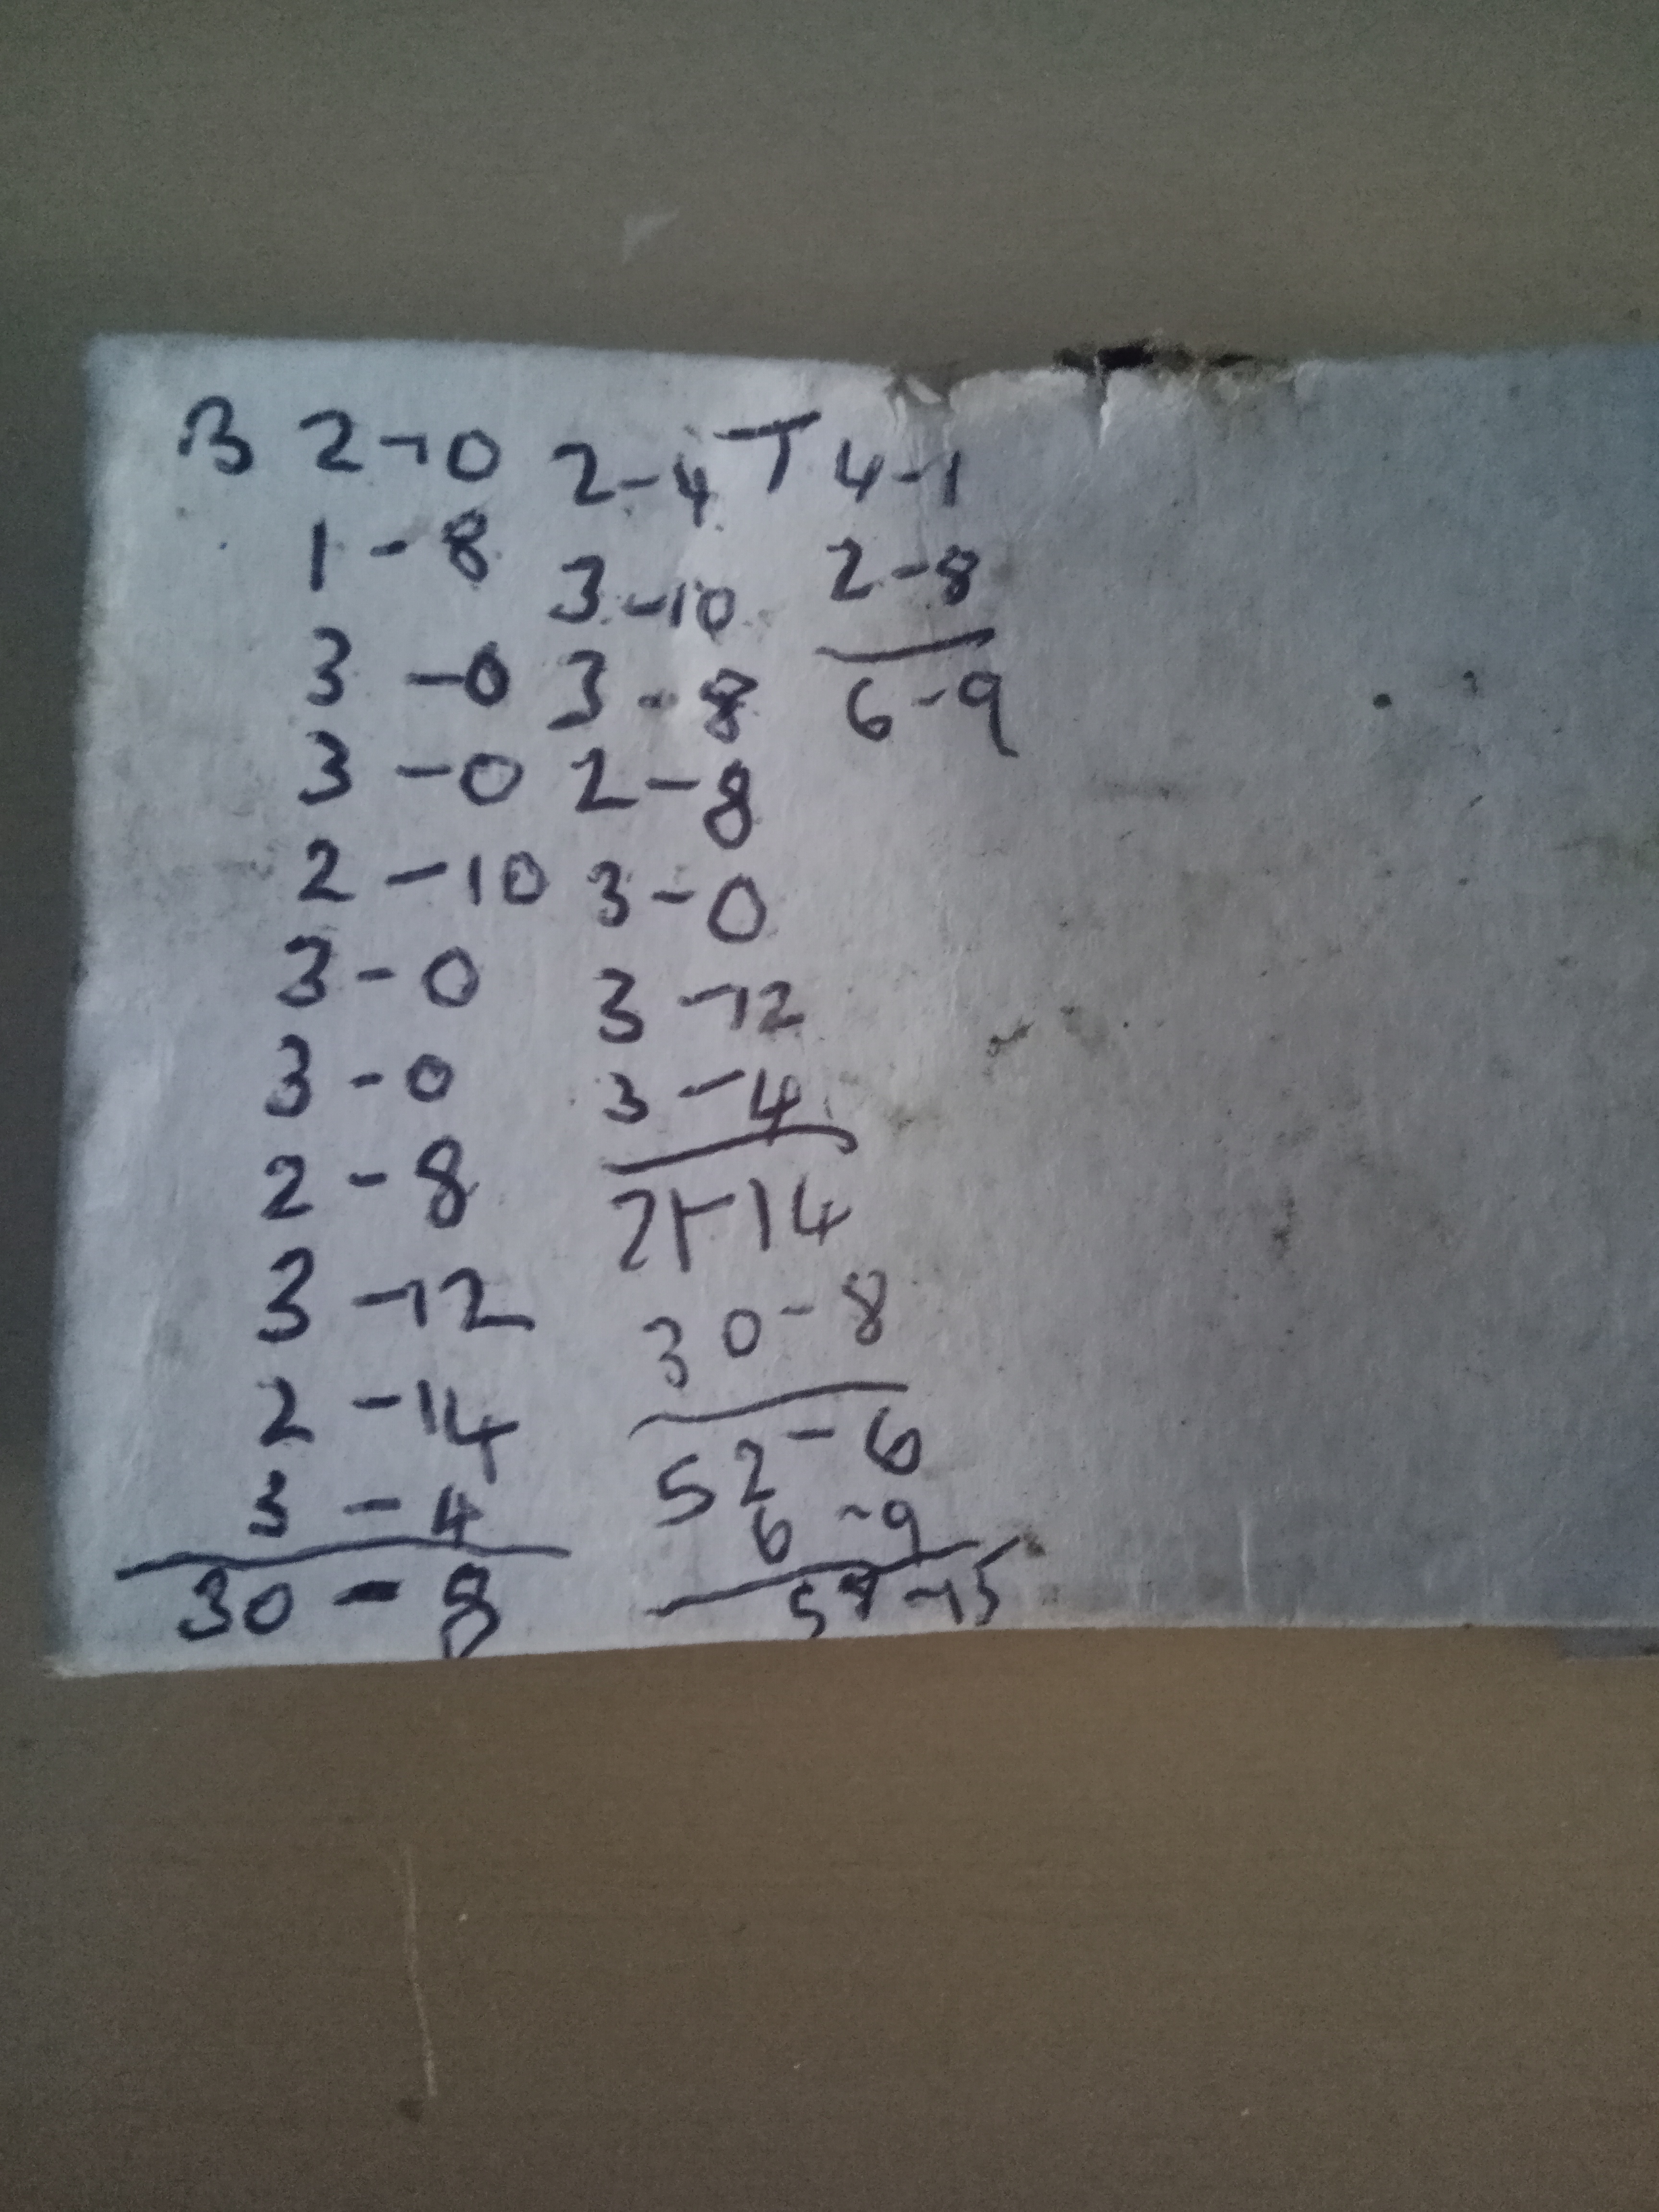 B 2-0 2-4 T 4-1
1-8 3-10 2-8
3-0 3-8 6-9
3-0 2-8
2-10 3-0
3-0 3-12
3-0 3-4
2-8 21-14
3-12 30-8
2-14 52-6
3-4 6-9
30-8 58-15